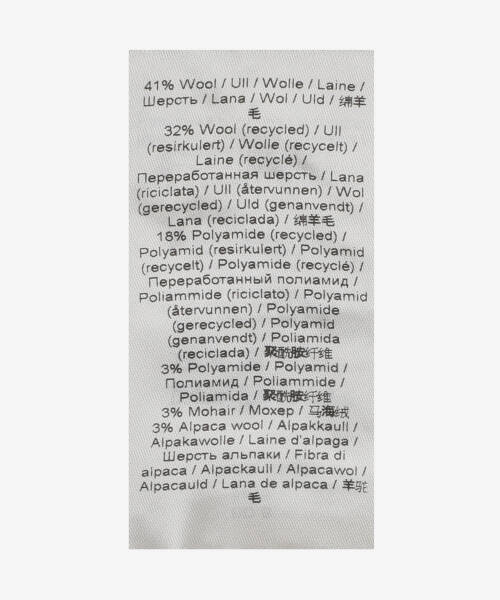 41% Wool / Ull / Wolle / Laine /
Шерсть / Lana / Wol / Uld / 绵羊
毛
32% Wool (recycled) / Ull
(resirkulert) / Wolle (recycelt) /
Laine (recyclé) /
Переработанная шерсть / Lana
(riciclata) / Ull (återvunnen) / Wol
(gerecycled) / Uld (genanvendt) /
Lana (reciclada) / 绵羊毛
18% Polyamide (recycled) /
Polyamid (resirkulert) / Polyamid
(recycelt) / Polyamide (recyclé) /
Переработанный полиамид /
Poliammide (riciclato) / Polyamid
(återvunnen) / Polyamide
(gerecycled) / Polyamid
(genanvendt) / Poliamida
(reciclada) / 聚酰胺纤维
3% Polyamide / Polyamid /
Полиамид / Poliammide /
Poliamida / 聚酰胺纤维
3% Mohair / Мохер / 马海绒
3% Alpaca wool / Alpakkaull /
Alpakawolle / Laine d'alpaga /
Шерсть альпаки / Fibra di
alpaca / Alpackaull / Alpacawol /
Alpacauld / Lana de alpaca / 羊驼
毛